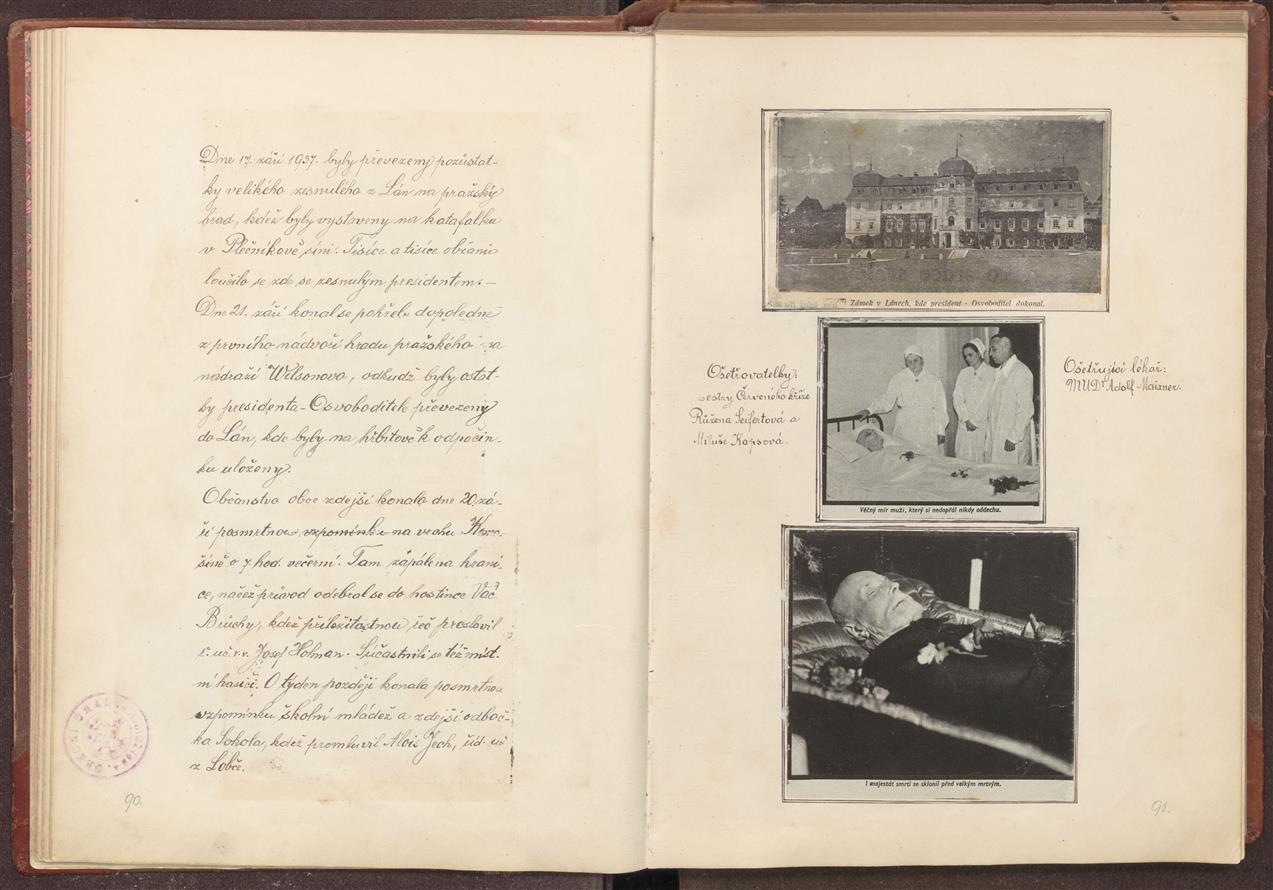 Dne 17. září 1937. byly převezeny pozůstat-
ky velikého zesnulého z Lán na pražský
hrad, kdež byly vystaveny na katafalku
v Plečnikově síni. Tisíce a tisíce občanů
loučilo se zde se zesnulým presidentem. –
Dne 21. září konal se pohřeb dopoledne
z prvního nádvoří hradu pražského na
nádraží Wilsonovo, odkudž byly ostat-
ky presidenta-Osvoboditele převezeny
do Lán, kde byly na hřbitově k odpočin-
ku uloženy.
Občanstvo obce zdejší konalo dne 20. zá-
ří posmrtnou vzpomínku na vrchu
o 7 hod. večerní. Tam zapálena hrani-
ce, načež průvod odebral se do hostince Vác.
Brůchy, kdež příležitostnou řeč proslovil
ř. uč. v.v. Josef Holman. Súčastnili se též míst-
ní hasiči. O týden později konala posmrtnou
vzpomínku školní mládež a zdejší odboč-
ka Sokola, kdež promluvil Alois Jech, říd. uč.
z Lobče.
90.
Zámek v Lánech, kde president - Osvoboditel dokonal.
Ošetřovatelky:
sestry Červeného kříže
Růžena Seifertová a
Miluše Kapsová.
Ošetřující lékař:
MUDr Adolf Maixner.
Věčný mír muži, který si nedopřál nikdy oddechu.
I majestát smrti se sklonil před velkým mrtvým.
91.